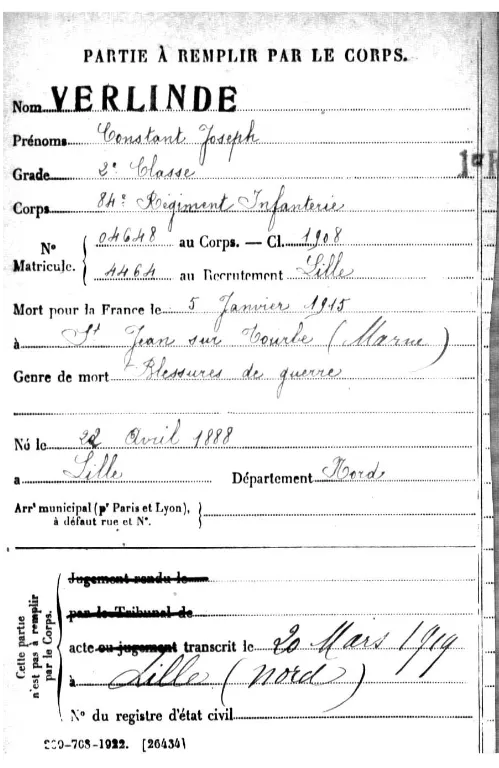 PARTIE À REMPLIR PAR LE CORPS.
Nom VERLINDE
Prénoms Constant Joseph
Grade 2e Classe
Corps 84e Régiment Infanterie
No Matricule. { 04648 au Corps. — Cl. 1908
4464 au Recrutement Lille
Mort pour la France le 5 Janvier 1915
à St Jean sur Tourbe (Marne)
Genre de mort Blessures de guerre
Né le 22 Avril 1888
a Lille Département Nord
Arrt municipal (pr Paris et Lyon),
à défaut rue et No.
Cette partie n'est pas à remplir par le Corps.
Jugement rendu le
par le Tribunal de
acte ou jugement transcrit le 20 Mars 1919
à Lille (Nord)
No du registre d'état civil
-708-1922. [26434]